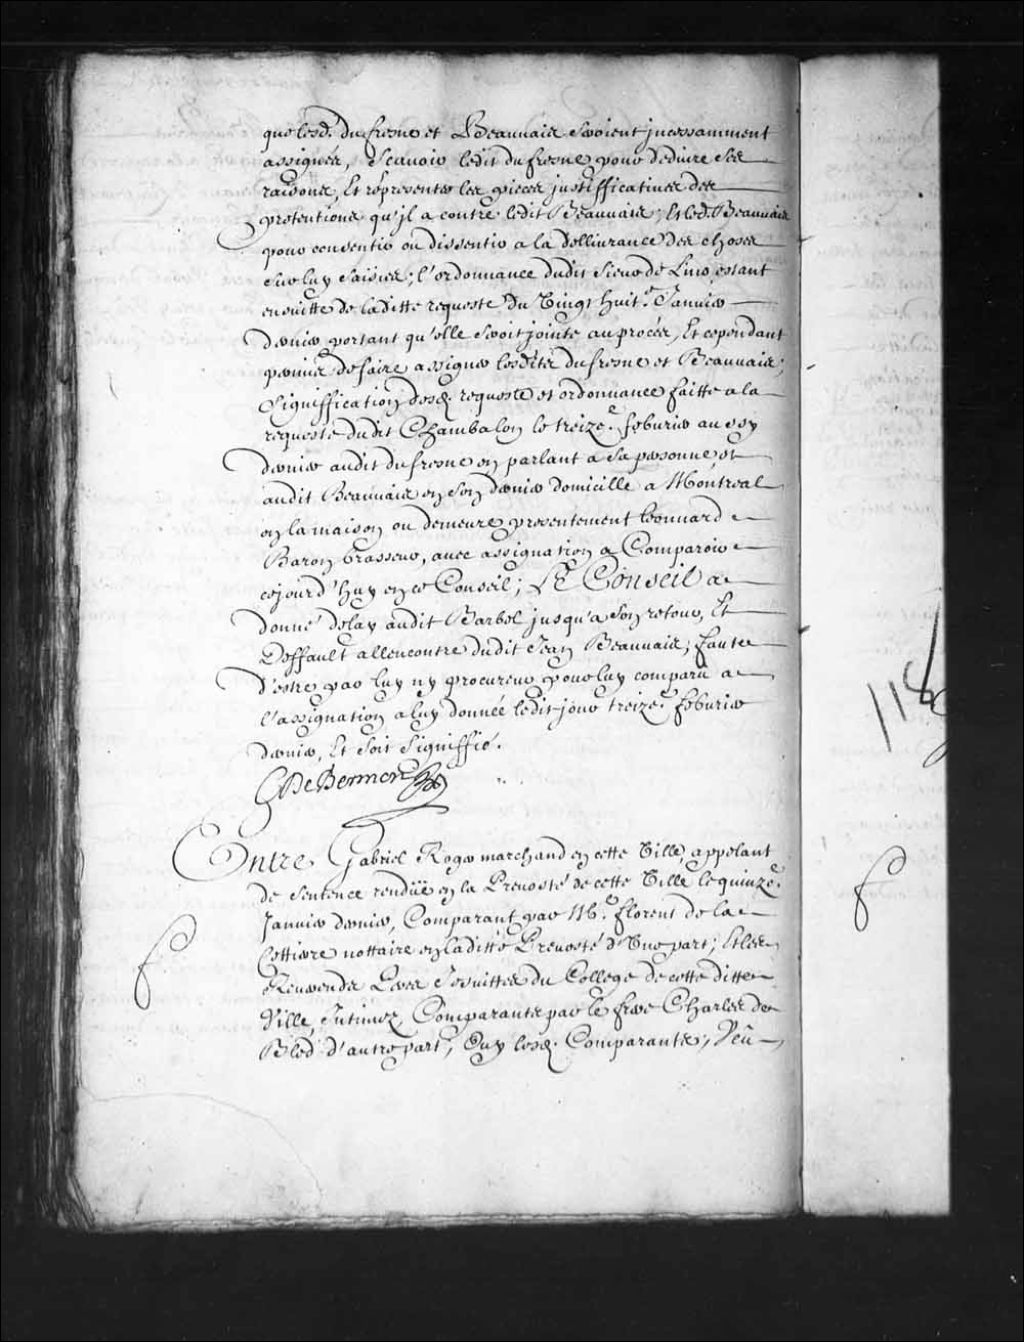 que lesd. du fresne et Beauvais seroient jncessamment
assignéz, Scauoir ledit du fresne pour deduire ses
raisons, Et representer les pieces justifficatiues des
pretentions qu'jl a contre ledit Beauvais; Et led. Beauvais
pour consentir ou dissentir a la dellivrance des choses
sur luy saisies; l'ordonnance dudit Sieur de Lino estant
ensuitte de laditte requeste du Vingt huit.e Januier
dernier portant qu'elle seroit jointe au procés, Et cependant
permis de faire assigner lesdits du fresne et Beauvais;
Signiffication desd. requeste et ordonnance faitte a la
requeste dudit Chambalon le treize.e feburier aussy
dernier audit du fresne en parlant a sa personne, et
audit Beauvais en son dernier domicille a Montreal
en la maison ou demeure presentement Leonnard
Baron brasseur, auec assignation a Comparoir
cejourd'huy en ce Conseil; Le Conseil a
donné delay audit Barbel jusqu'a son retour, Et
Deffault allencontre dudit Jean Beauvais, faute
d'estre par luy ny procureur pour luy comparu a
l'assignation a luy donnée ledit jour treize.e feburier
dernier, Et soit Signiffié.
CDeBermen
Entre Gabriel Roger marchand en cette Ville, appelant
de sentence rendüe en la Preuosté de cette Ville le quinze.e
Januier dernier, Comparant par M.e florent de la
Cettiere nottaire en laditte Preuosté d'Vne part; Et les
Reuerends Peres Jesuittes du College de cette ditte
Ville, Intimez, Comparants par le frere Charles
Bled d'autre part; Ouy lesd. Comparants; Veu
118